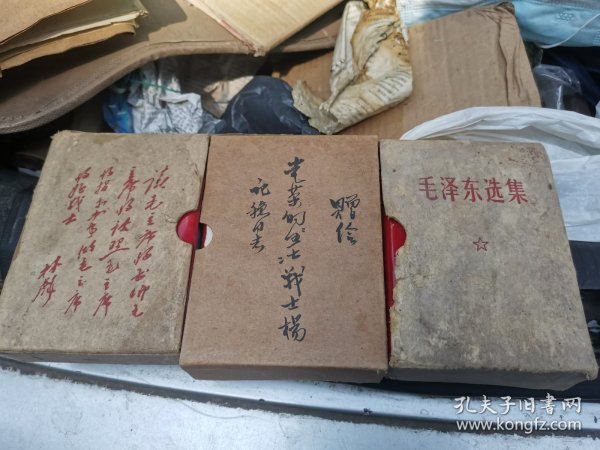 读毛主席的书听毛
主席的话照毛主席
的指示办事做毛主席
的好战士
林彪
赠给
光荣的五七战士杨
同志
毛泽东选集
孔夫子旧书网
www.kongfz.com